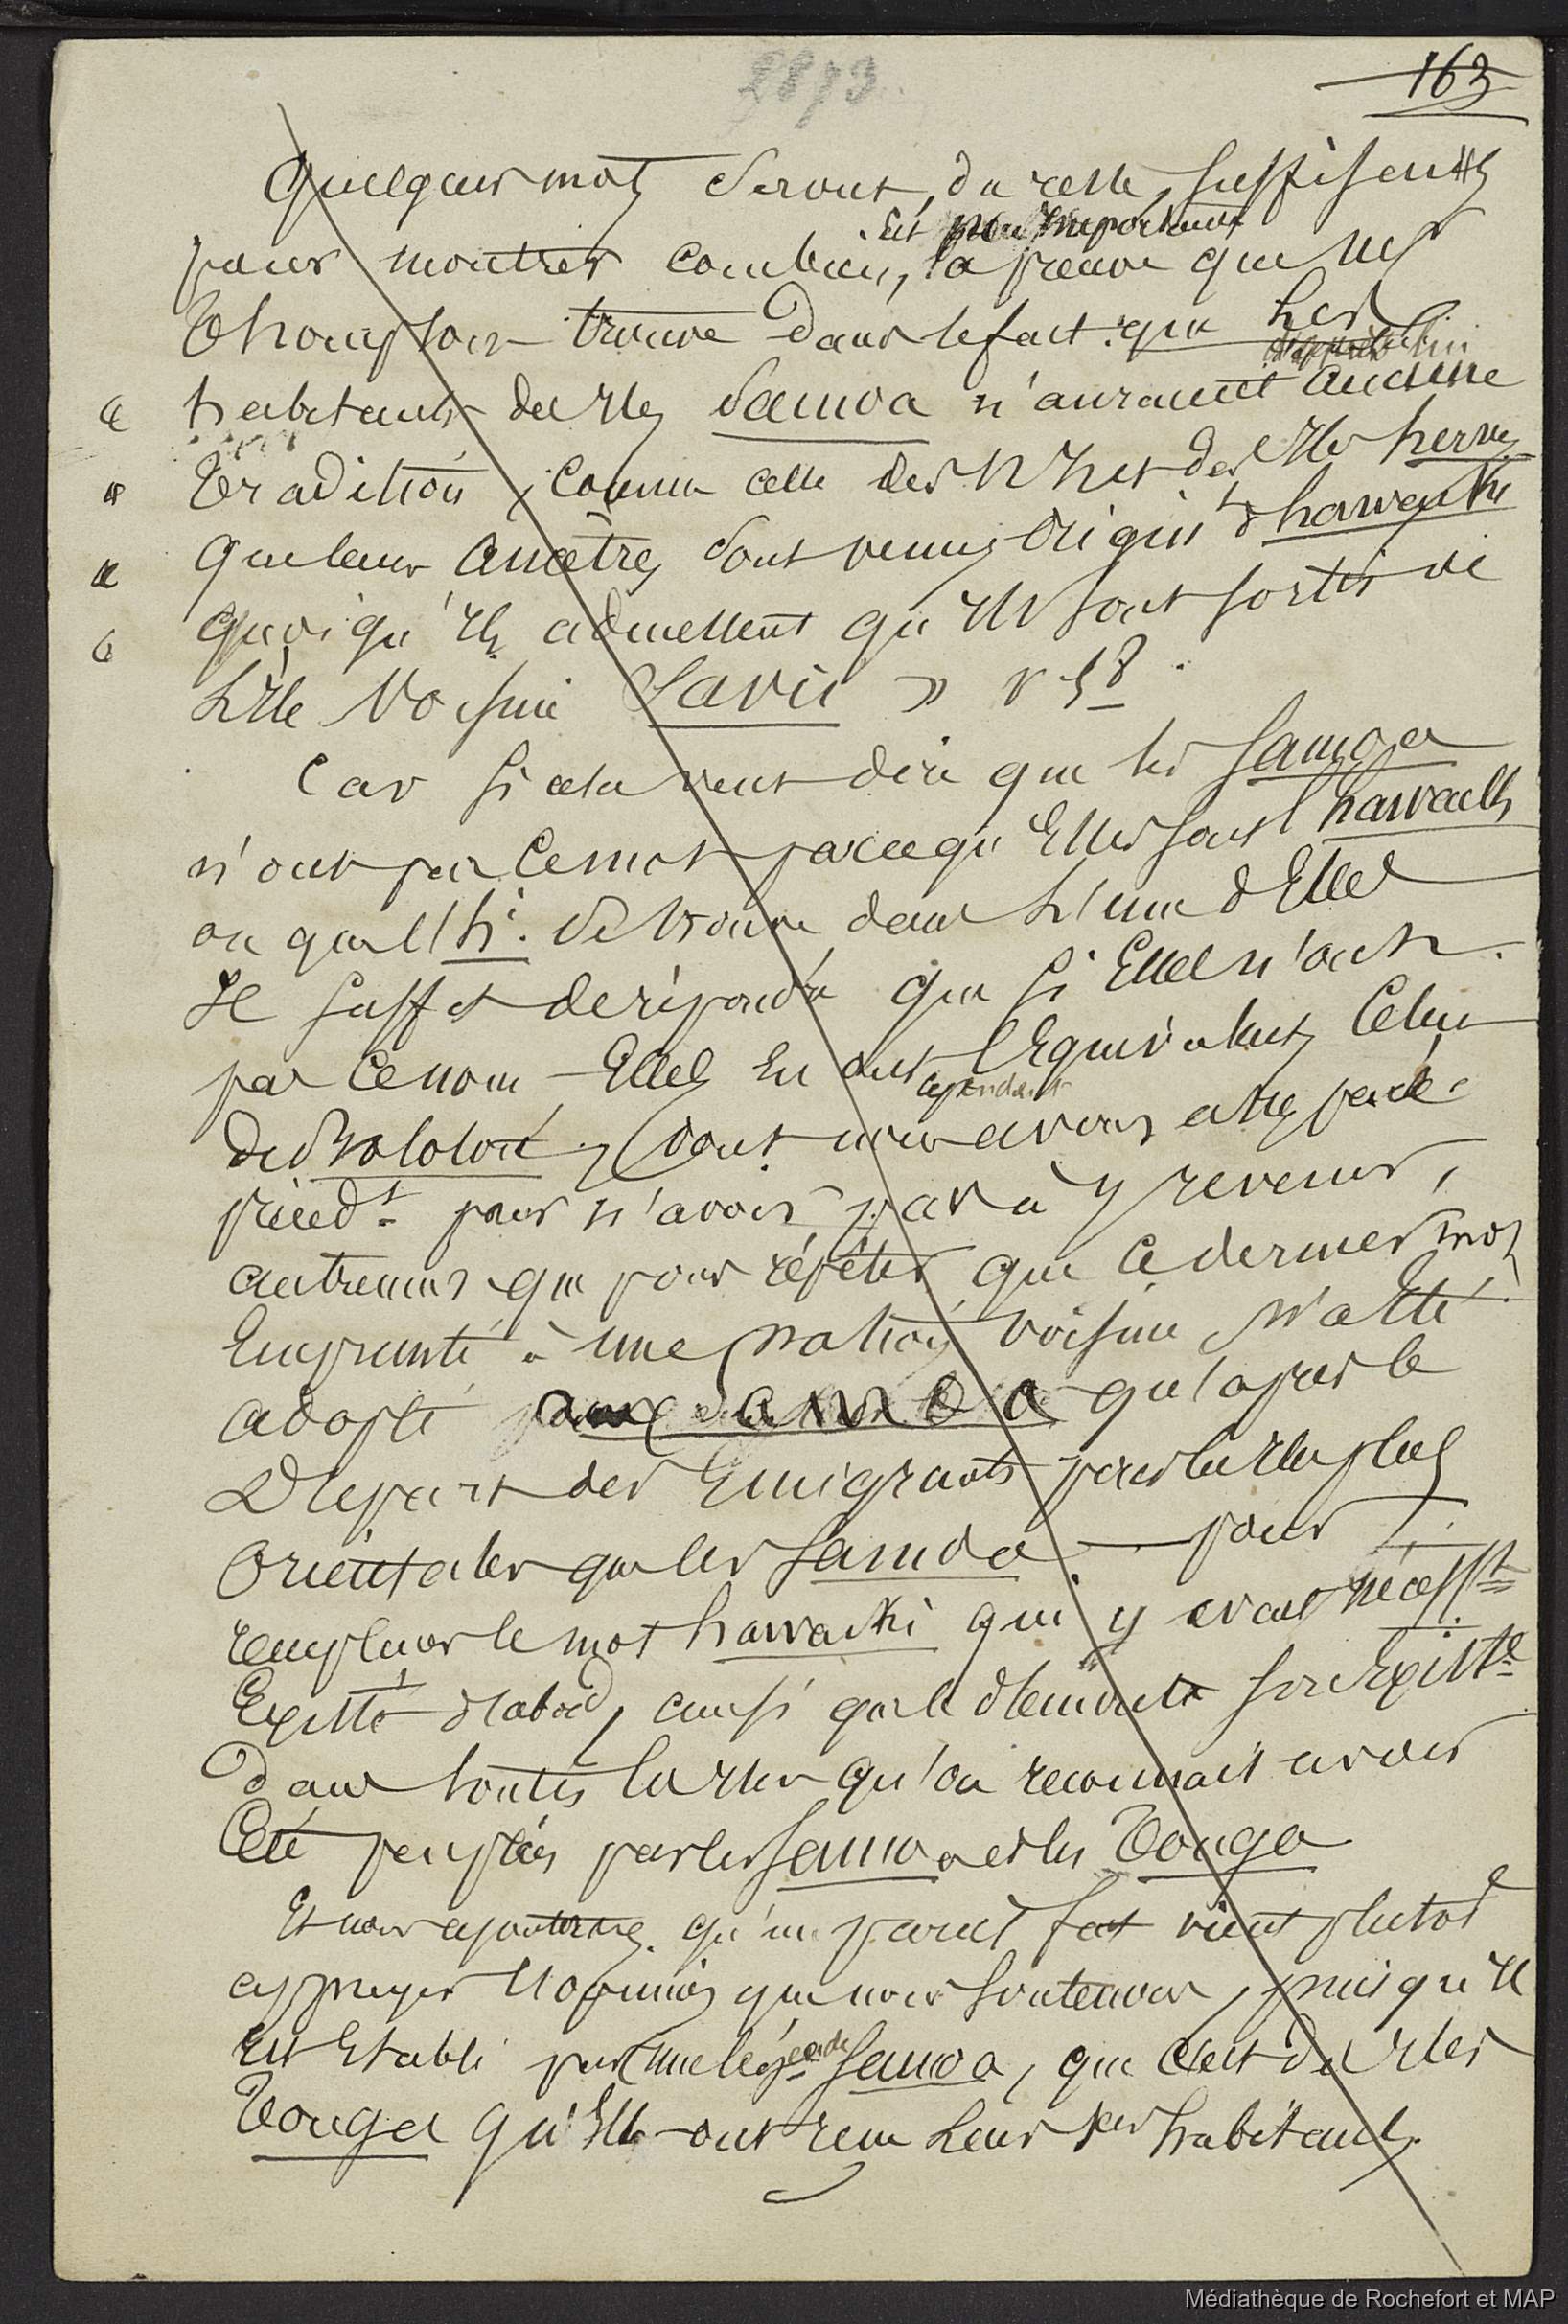 2873
163
Quelques mots seront, du reste, suffisents
est peu importante
pour montrer combien, la preuve que Mr
Thompson trouve dans le fait que les
d'après lui
« habitants des Iles Samoa n'auraient aucune
« tradition, comme celle des N Z et des Iles hervey
« que leurs ancêtres sont venus origint d'hawaiki
« quoiqu'ils admettent qu'ils sont sortis de
L'Ile voisine Savii » p 58.
Car si cela veut dire que les Samoa
n'ont pas ce mot parcequ'Elles sont l'hawaiki
ou que l'hi. se trouve dans L'une d'Elles
Il suffit de répondre que si Elles n'ont
pas ce nom Elles en ont l'Equivalent, Celui
cependant
de Bolotou, dont nous avons assez parlé
précédt pour n'avoir pas à y revenir,
autrement que pour répéter que ce dernier mot
Emprunté à une nation voisine n'a été
adopté aux Samoa qu'après le
Départ des Emigrants pour les Iles plus
Orientales que les Samoa. — pour
remplacer le mot hawaiki qui y avait nécesst
Existé d'abord, ainsi que le démontre son Existce
dans toutes les Iles qu'on reconnait avoir
Eté peuplées par les Samoa et les Tonga
Et nous ajouterons qu'un pareil fait vient plutot
appuyer l'opinion que nous soutenons, puisqu'Il
Est Etabli par une légende Samoa, que c'est des Iles
Tonga qu'Elles ont reçu Leurs 1ers habitants.
Médiathèque de Rochefort et MAP